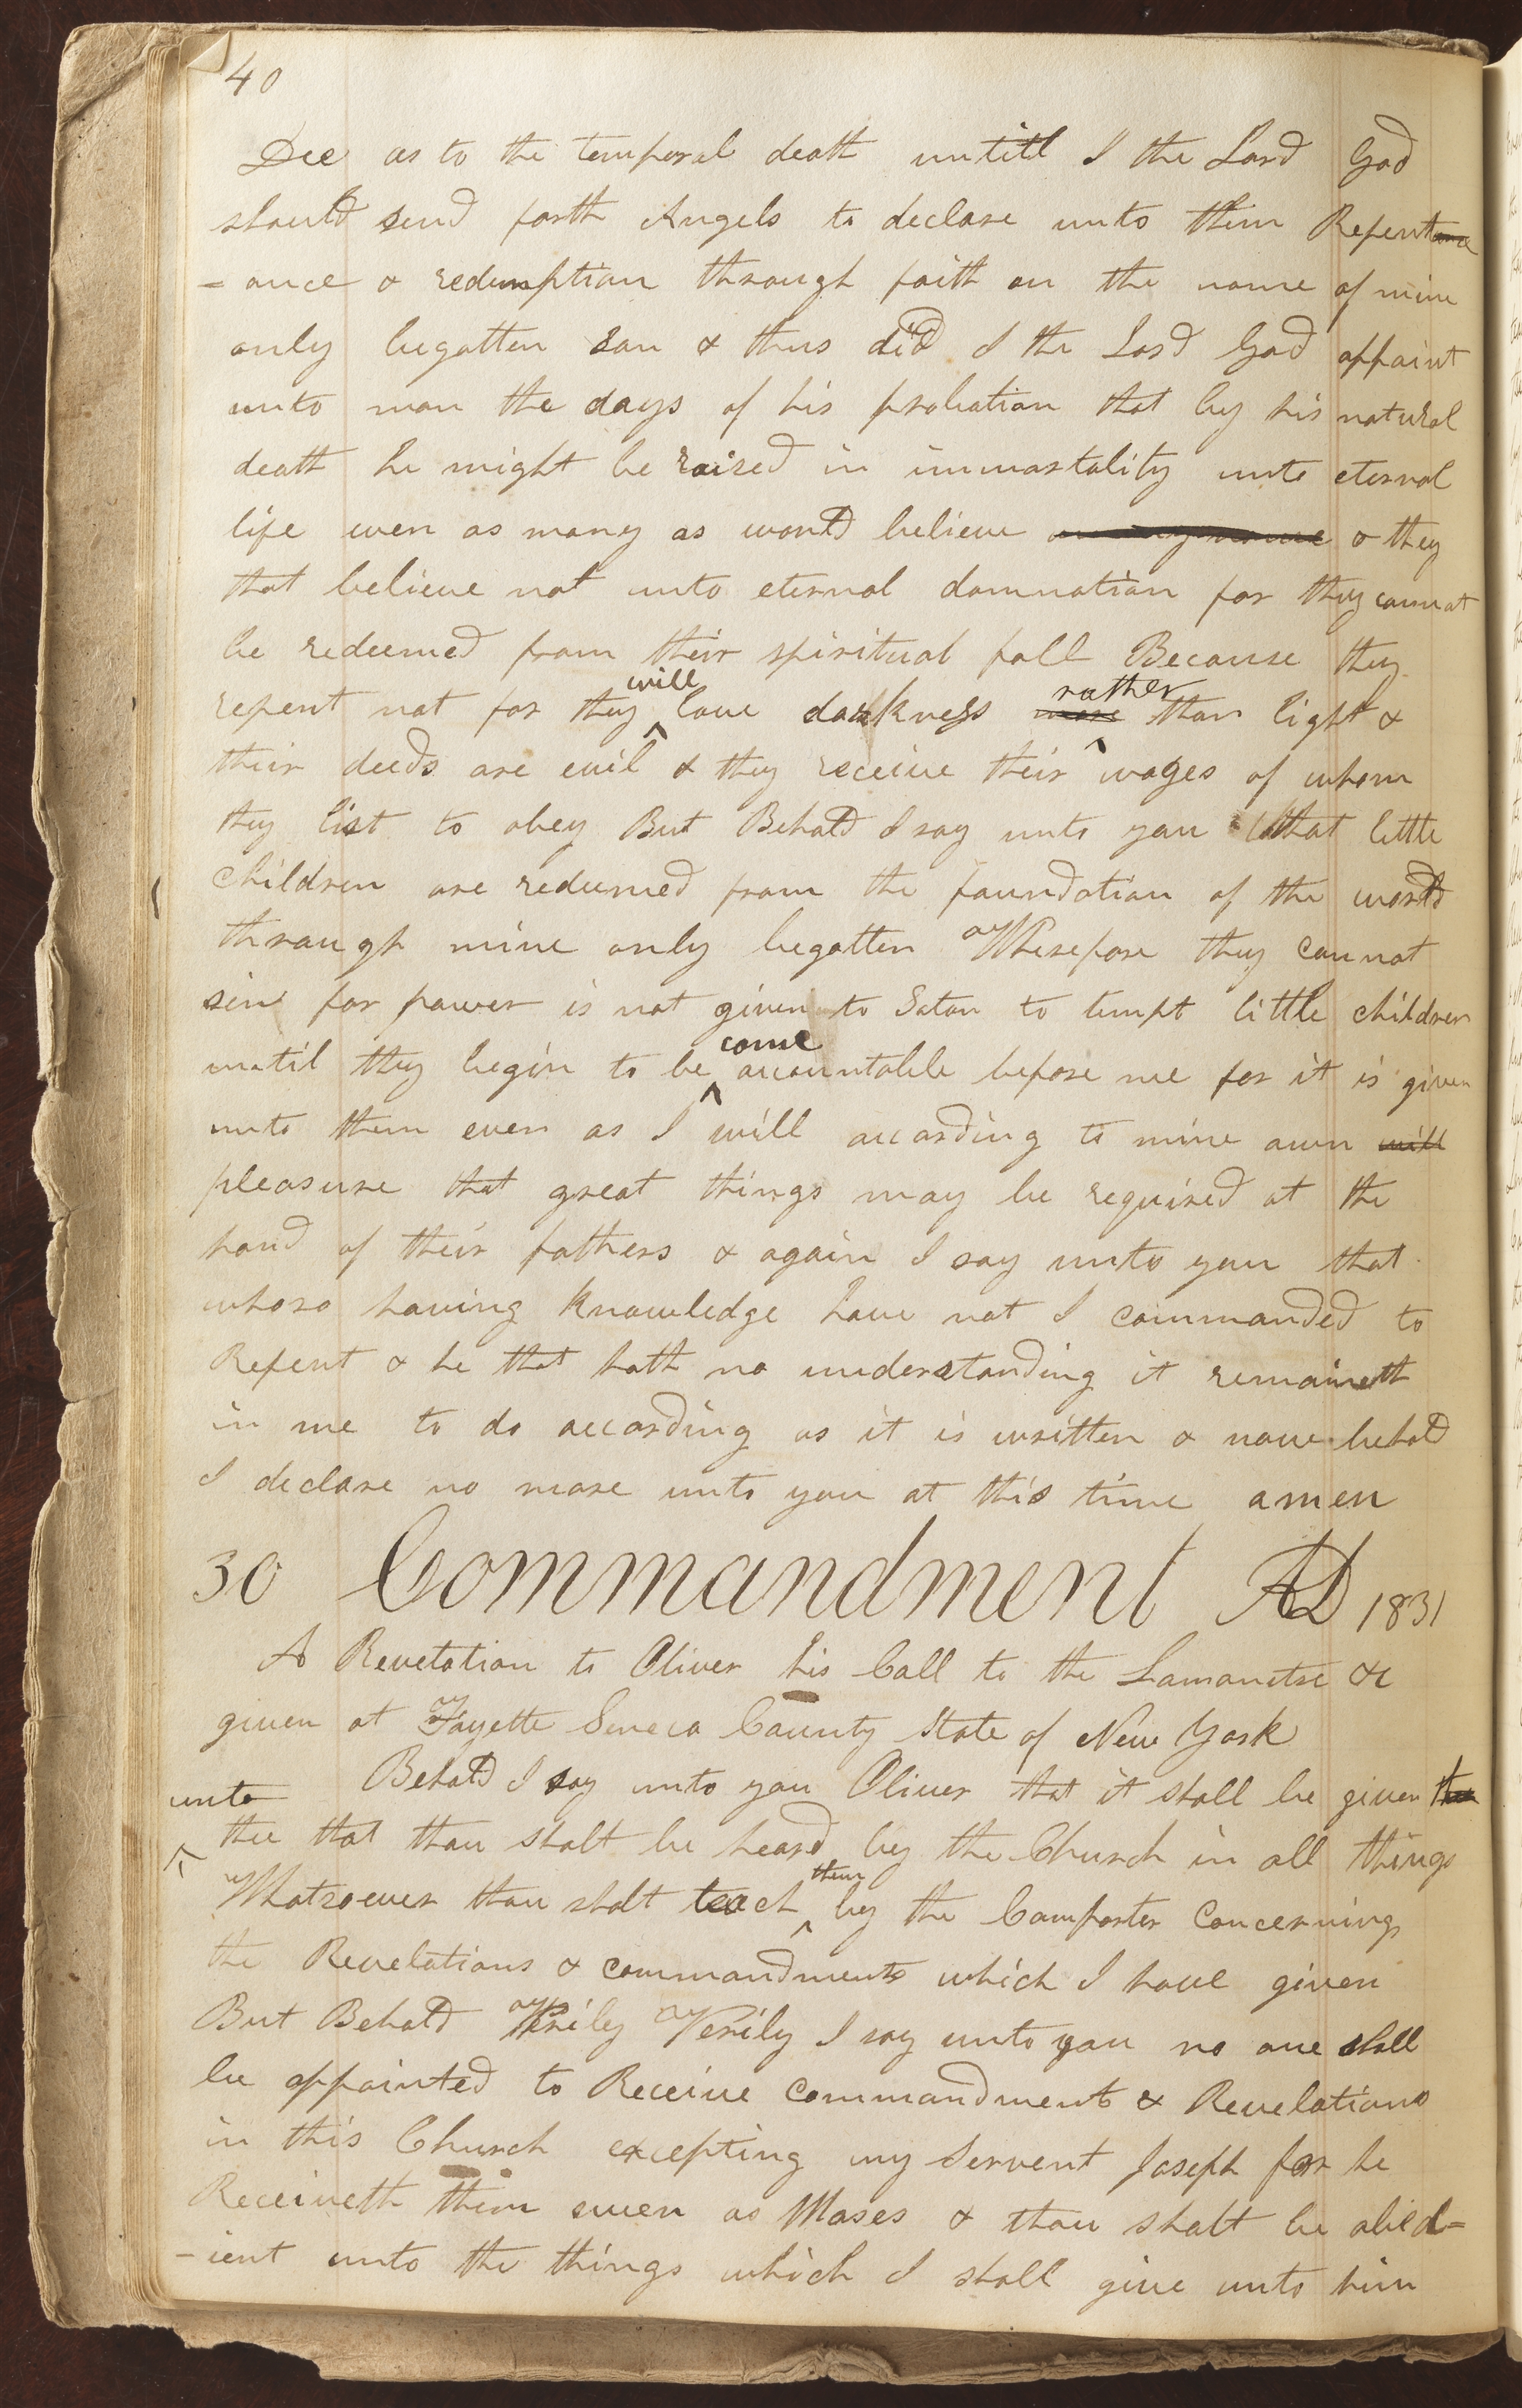 40
Dee as to the temporal death untill I the Lord God
should send forth Angels to declare unto them Repentance
=ance & redemption through faith on the name of mine
only begotten son & thus did I the Lord God appoint
unto man the days of his probation that by his natural
death he might be raised in immortality unto eternal
life even as many as would believe on my name & they
that believe not unto eternal damnation for they cannot
be redeemed from their spiritual fall Because they
repent not for they will love darkness more rather than light &
their deeds are evil & they receive their wages of whom
they list to obey But Behold I say unto you that little
Children are redeemed from the foundation of the world
through mine only begotten Wherefore they cannot
sin for power is not given to Satan to tempt little children
until they begin to be come accountable before me for it is given
unto them even as I will according to mine own will
pleasure that great things may be required at the
hand of their fathers & again I say unto you that
whoso having knowledge have not I commanded to
Repent & he that hath no understanding it remaineth
in me to do according as it is written & now behold
I declare no more unto you at this time amen
30 Commandment AD 1831
A Revelation to Oliver his Call to the Lamanites &c
given at Fayette Seneca County State of New York
Behold I say unto you Oliver that it shall be given thee
unto thee that thou shalt be heard by the Church in all things
Whatsoever thou shalt teach them by the Comforter Concerning
the Revelations & commandments which I have given
But Behold Verily Verily I say unto you no one shall
be appointed to Receive commandments & Revelations
in this Church excepting my Servent Joseph for he
Receiveth them even as Moses & thou shalt be obed=
-ient unto the things which I shall give unto him